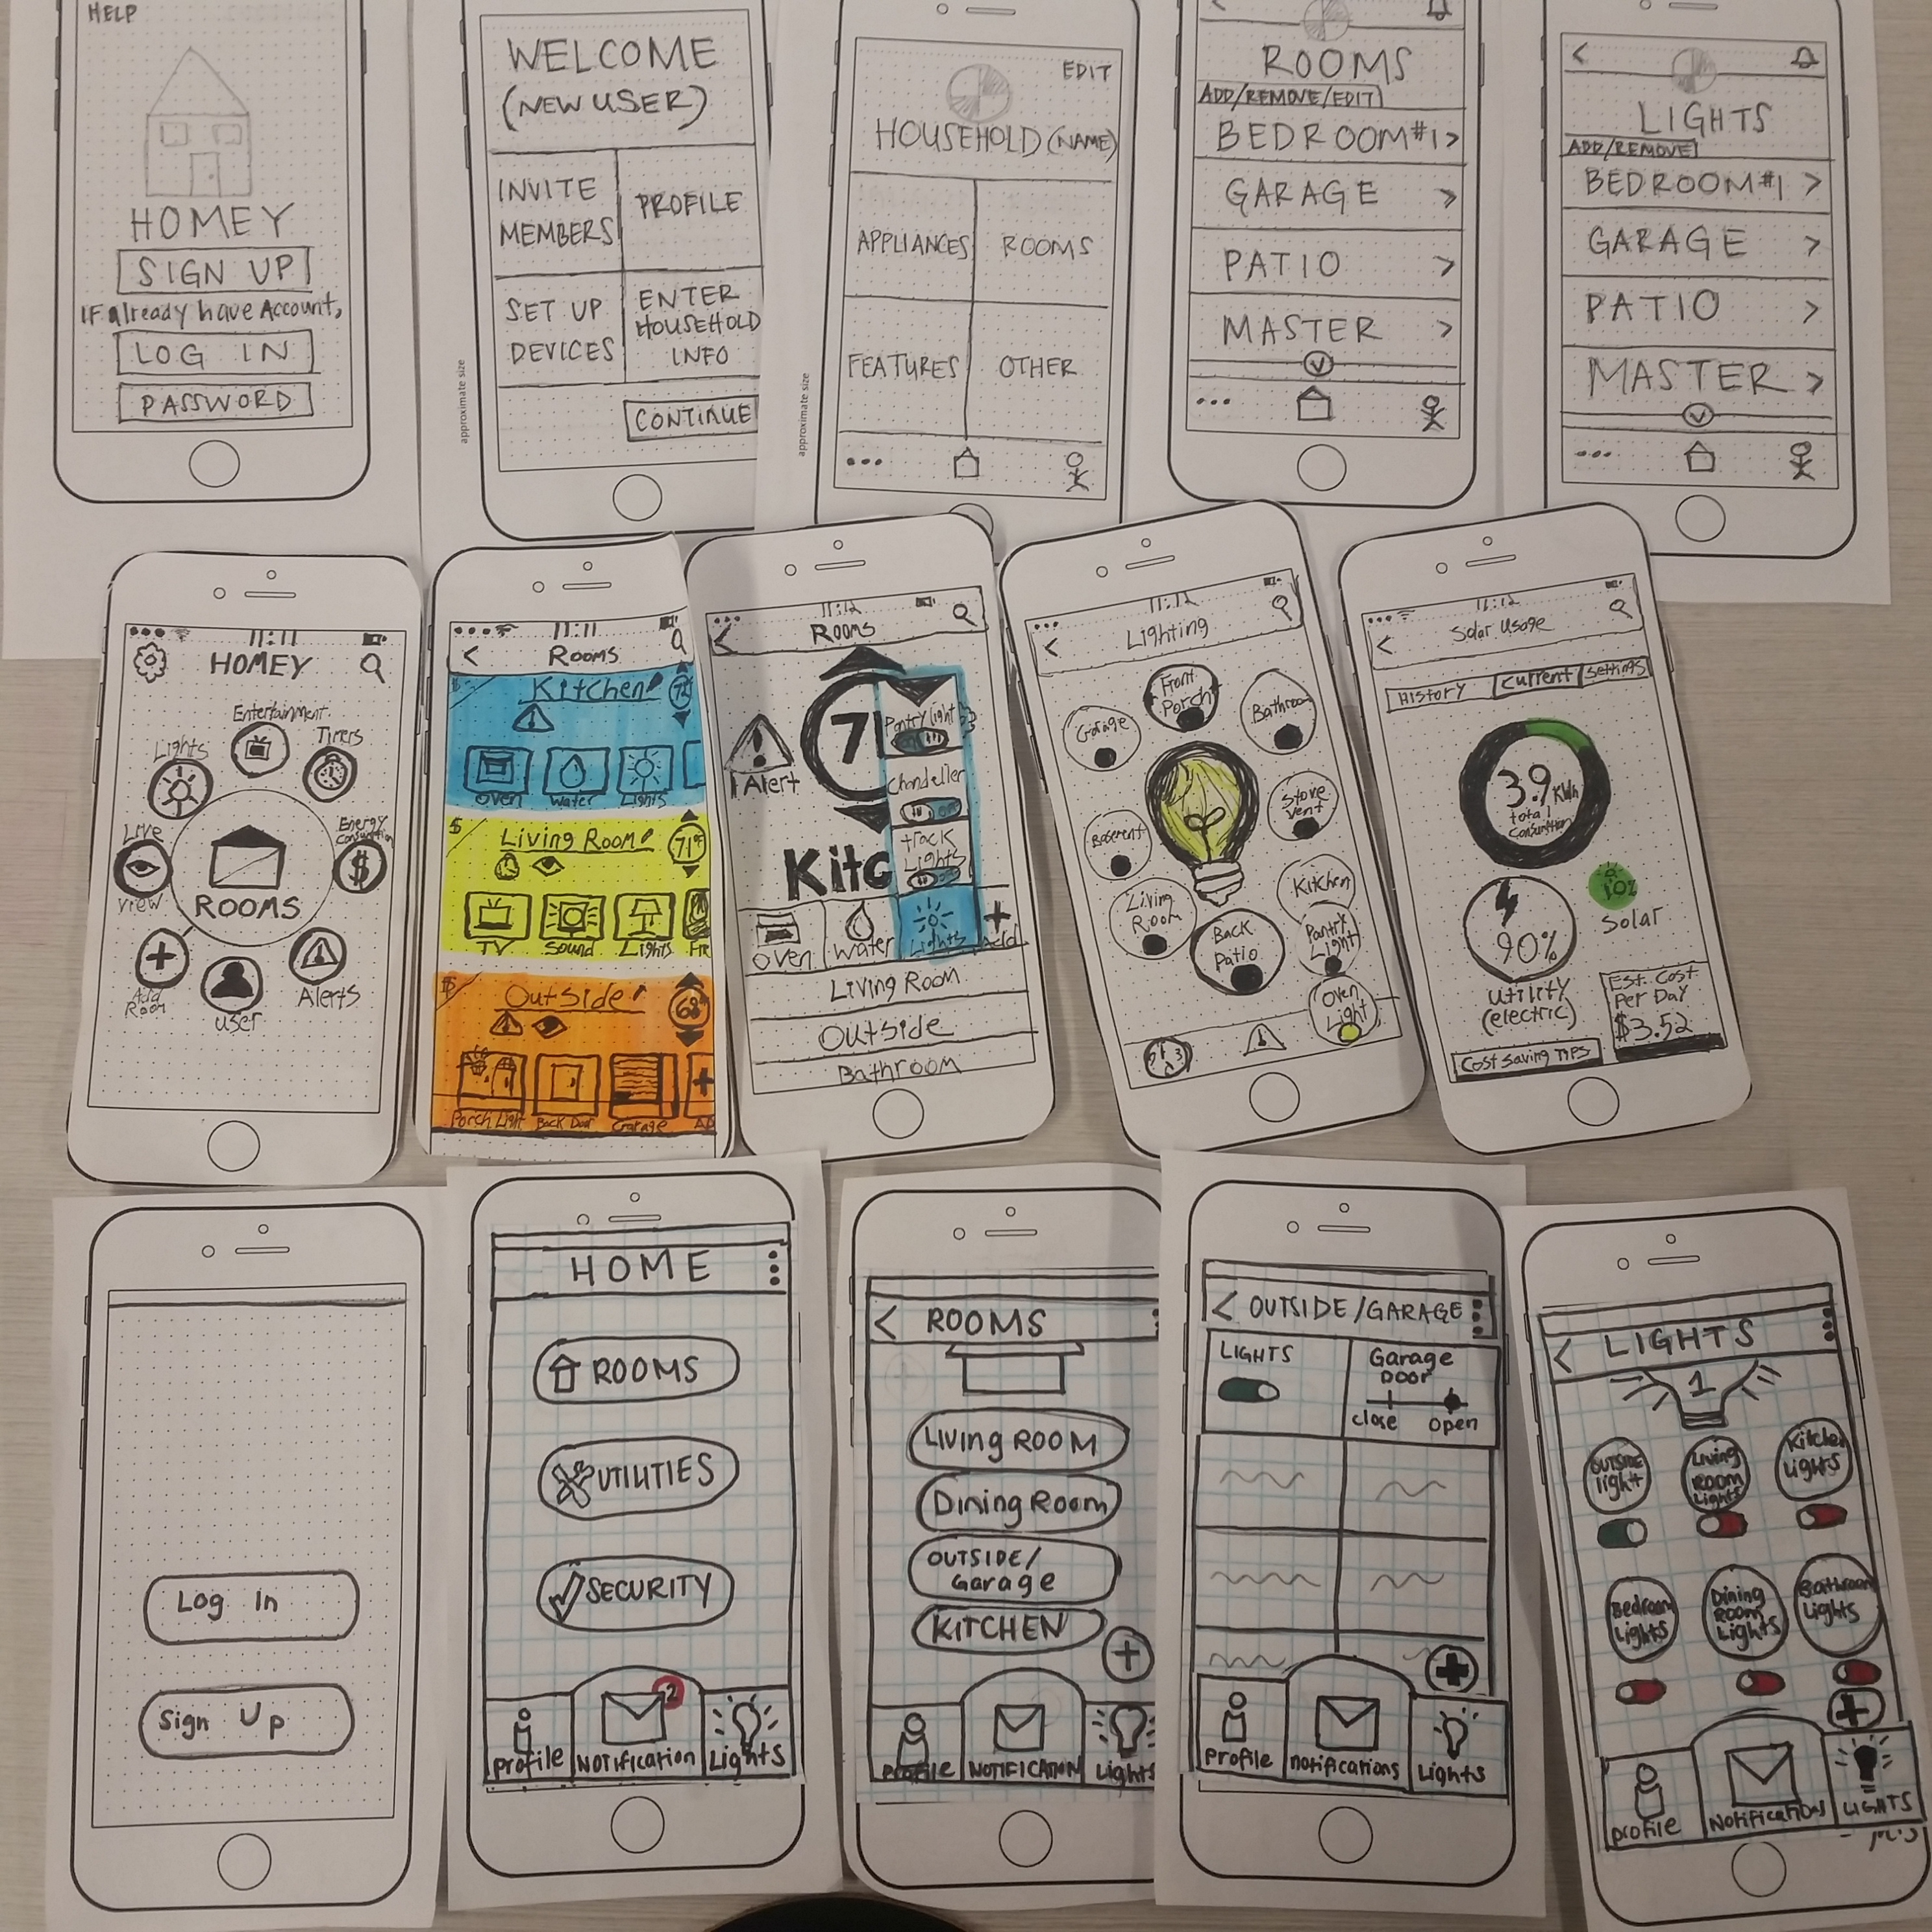 HELP
HOMEY
SIGN UP
IF already have Account,
LOG IN
PASSWORD
approximate size
WELCOME
(NEW USER)
INVITE
MEMBERS
PROFILE
SET UP
DEVICES
ENTER
HOUSEHOLD
INFO
CONTINUE
approximate size
EDIT
HOUSEHOLD (NAME)
APPLIANCES
ROOMS
FEATURES
OTHER
ROOMS
ADD/REMOVE/EDIT
BEDROOM #1 >
GARAGE >
PATIO >
MASTER >
LIGHTS
ADD/REMOVE
BEDROOM #1 >
GARAGE >
PATIO >
MASTER >
11:11
HOMEY
Entertainment
Lights
Timers
Live
View
Energy
Consumption
$
ROOMS
Add
Room
User
Alerts
11:11
< Rooms
$ Kitchen
Oven Water Lights
$ Living Room 71°
TV Sound Lights
$ Outside 68°
Porch Light Back Door Garage
11:12
< Rooms
Alert
7
Pantry light
Chandelier
track
Lights
Kitc
Oven Water Lights Add
Living Room
Outside
Bathroom
11:12
< Lighting
Front
Porch
Garage
Bathroom
Stove
Vent
Basement
Kitchen
Living
Room
Back
Patio
Pantry
Light
Oven
Light
11:12
< Solar Usage
History Current Settings
3.9 KWh
total
Consumption
10%
Solar
90%
Utility
(electric)
Est. Cost
Per Day
$3.52
Cost Saving Tips
Log In
Sign Up
HOME
ROOMS
UTILITIES
SECURITY
2
profile NOTIFICATION Lights
< ROOMS
LIVING ROOM
Dining Room
OUTSIDE/
Garage
KITCHEN
+
profile NOTIFICATION Lights
< OUTSIDE/GARAGE
LIGHTS
Garage
DOOR
close open
profile notifications Lights
< LIGHTS
1
OUTSIDE
light
Living
ROOM
Lights
Kitchen
Lights
Bedroom
Lights
Dining
Room
Lights
Bathroom
Lights
profile Notifications LIGHTS